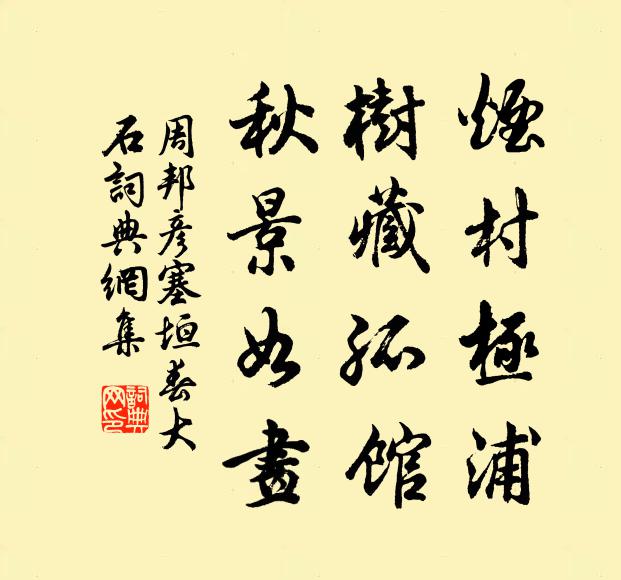 煙村極浦
樹藏孤館
秋景如畫
周邦彥塞垣春大
石詞典網集
詞典
网印